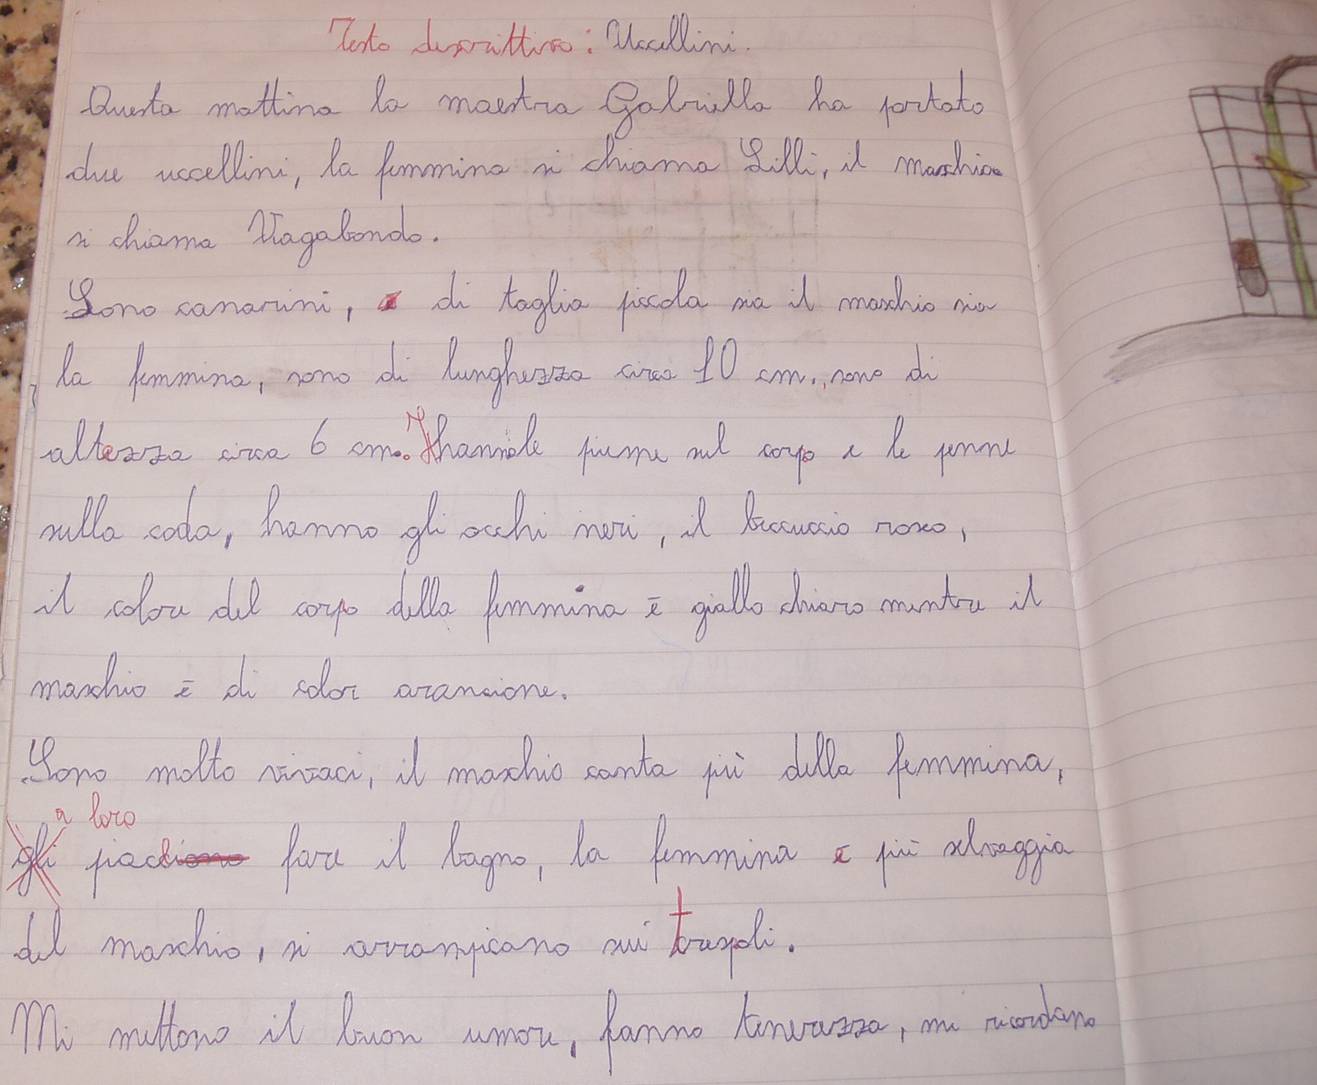 Testo descrittivo: Uccellini.
Questa mattina la maestra Gabriella ha portato
due uccellini, la femmina si chiama Lilli, il maschio
si chiama Vagabondo.
Sono canarini, di taglia piccola sia il maschio sia
la femmina, sono di lunghezza circa 10 cm., sono di
altezza circa 6 cm. hanno le piume sul corpo e le penne
sulla coda, hanno gli occhi neri, il beccuccio roseo,
il colore del corpo della femmina è giallo chiaro mentre il
maschio è di color arancione.
Sono molto vivaci, il maschio canta più della femmina,
a loro
gli piacciono fare il bagno, la femmina è più selvaggia
del maschio, si arrampicano sui trespoli.
Mi mettono il buon umore, fanno tenerezza, mi ricordano